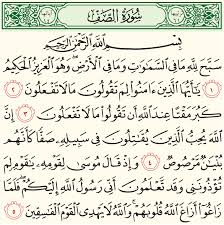 سُورَةُ الصَّفِّ
بِسْمِ اللَّهِ الرَّحْمَٰنِ الرَّحِيمِ
سَبَّحَ لِلَّهِ مَا فِي السَّمَٰوَٰتِ وَمَا فِي الْأَرْضِ ۖ وَهُوَ الْعَزِيزُ الْحَكِيمُ
١ يَٰٓأَيُّهَا الَّذِينَ ءَامَنُوا لِمَ تَقُولُونَ مَا لَا تَفْعَلُونَ ٢
كَبُرَ مَقْتًا عِندَ اللَّهِ أَن تَقُولُوا مَا لَا تَفْعَلُونَ ٣ إِنَّ
اللَّهَ يُحِبُّ الَّذِينَ يُقَٰتِلُونَ فِي سَبِيلِهِ صَفًّا كَأَنَّهُم
بُنْيَٰنٌ مَّرْصُوصٌ ٤ وَإِذْ قَالَ مُوسَىٰ لِقَوْمِهِ يَٰقَوْمِ لِمَ
تُؤْذُونَنِي وَقَد تَّعْلَمُونَ أَنِّي رَسُولُ اللَّهِ إِلَيْكُمْ ۖ فَلَمَّا
زَاغُوا أَزَاغَ اللَّهُ قُلُوبَهُمْ ۚ وَاللَّهُ لَا يَهْدِي الْقَوْمَ الْفَٰسِقِينَ ٥